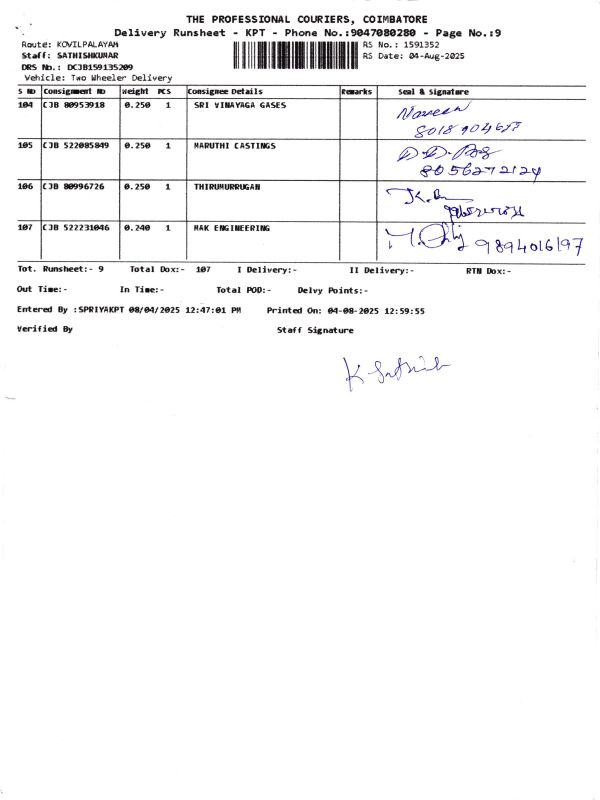 THE PROFESSIONAL COURIERS, COIMBATORE
Delivery Runsheet - KPT - Phone No.:9047080280 - Page No.:9
Route: KOVILPALAYAM
RS No.: 1591352
Staff: SATHISHKUMAR
RS Date: 04-Aug-2025
DRS No.: DCJB159135209
Vehicle: Two Wheeler Delivery
S No Consignment No Weight PCS Consignee Details Remarks Seal & Signature
104 CJB 80953918 0.250 1 SRI VINAYAGA GASES Naveen
105 CJB 522085849 0.250 1 MARUTHI CASTINGS
8056272124
106 CJB 80996726 0.250 1 THIRUMURRUGAN
107 CJB 522231046 0.240 1 MAK ENGINEERING 9894016197
Tot. Runsheet:- 9 Total Dox:- 107 I Delivery:- II Delivery:- RTN Dox:-
Out Time:- In Time:- Total POD:- Delvy Points:-
Entered By :SPRIYAKPT 08/04/2025 12:47:01 PM Printed On: 04-08-2025 12:59:55
Verified By Staff Signature